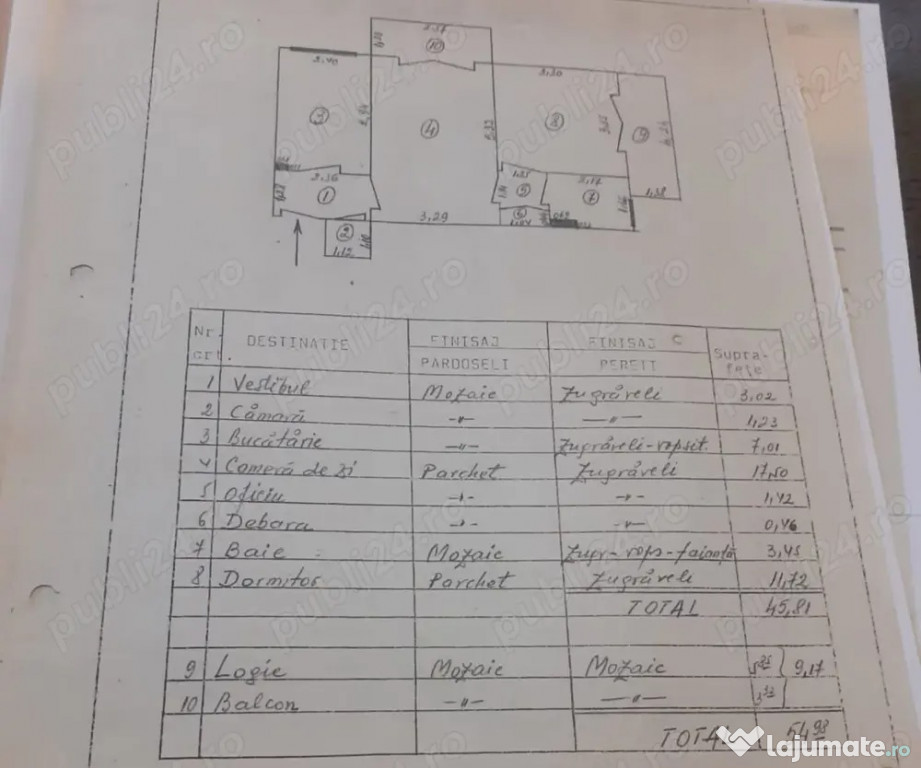 2,57
1,29
10
2,40
3,30
3
2,94
4
5,32
8
3,55
9
4,24
2,36
1,25
2,17
1
5
7
1,38
6
3,29
2
1,10
1,12
Nr. crt.
DESTINATIE
FINISAJ PARDOSELI
FINISAJ PERETI
C
Supra-fețe
1 Vestibul Mozaic Zugrăveli 3,02
2 Cămară -〃- -〃- 1,23
3 Bucătărie -〃- Zugrăveli-vopsit. 7,01
4 Cameră de zi Parchet Zugrăveli 17,50
5 Oficiu -〃- -〃- 1,42
6 Debara -〃- -〃- 0,46
7 Baie Mozaic Zugr-vops-faianță 3,45
8 Dormitor Parchet Zugrăveli 11,72
TOTAL 45,81
9 Logie Mozaic Mozaic 9,17
10 Balcon -〃- -〃-
TOTAL 54,98
lajumate.ro
publi24.ro